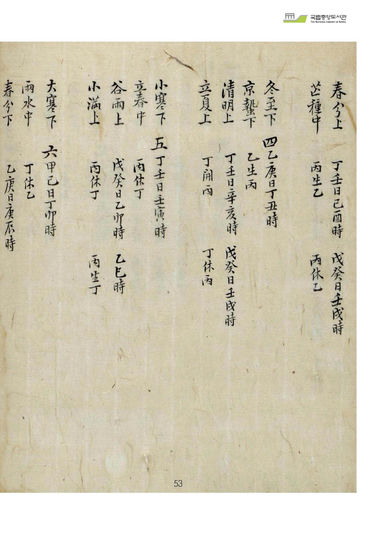 국립중앙도서관
春分上 丁壬日己酉時 戊癸日壬戌時
芒種中 丙生乙 丙休乙
冬至下 四乙庚日丁丑時
京蟄下 乙生丙
清明上 丁壬日辛亥時 戊癸日壬戌時
立夏上 丁開丙 丁休丙
小寒下 五丁壬日壬寅時
立春中 丙休丁
谷雨上 戊癸日乙卯時 乙巳時
小滿上 丙休丁 丙生丁
大寒下 六甲己日丁卯時
雨水中 丁休乙
春分下 乙庚日庚辰時
53